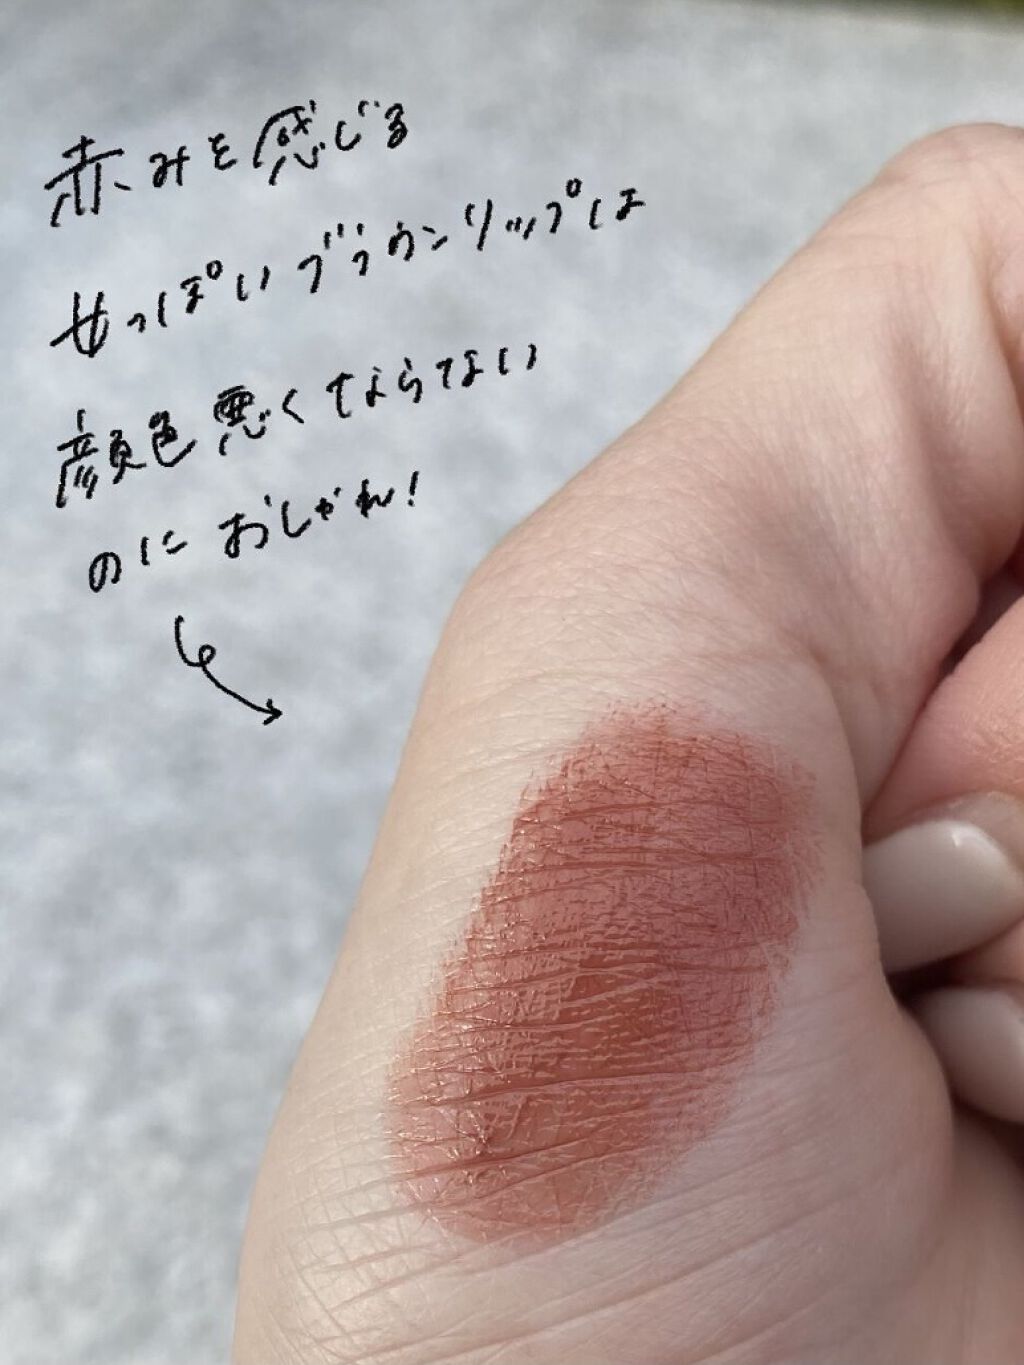 赤みを感じる
女っぽいブラウンリップは
顔色悪くもならない
のにおしゃれ!